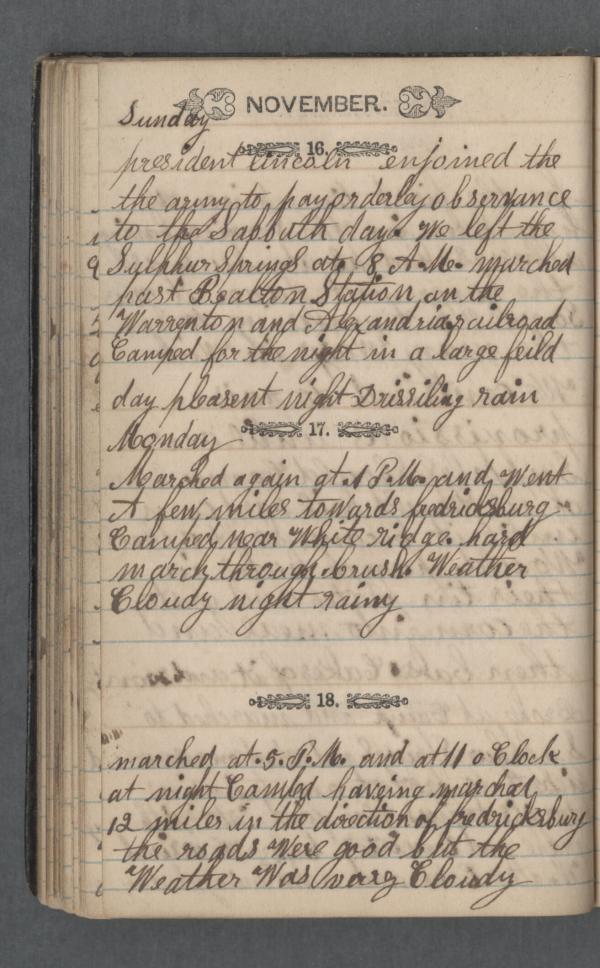 NOVEMBER.
Sunday
16.
president Lincoln enjoined the
the army to pay orderley observance
to the Sabbuth day. We left the
Sulphur Springs at 8 A.M. marched
past Bealton Station on the
Warrenton and Alexandria railroad
Camped for the night in a large feild
day pleasent night Drissiling rain
17.
Monday
Marched again at 1 P.M. and Went
A few miles towards fredricksburg
Camped near White ridge. hard
march through brush. Weather
Cloudy night rainy
18.
marched at 5. P.M. and at 11 o Clock
at night Camped haveing marched
12 miles in the direction of fredricksbury
the roads Were good but the
Weather Was verry Cloudy